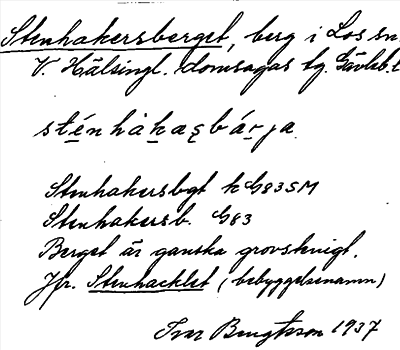 Stenhakersberget, berg i Los sn.
V. Hälsingl. domsagas tg. Gävleb. l
sténhàkaʂbárja.
Stenhakersbgt k G83SM
Stenhakersb. G83
Berget är ganska grovstenigt.
Jfr. Stenhacklet (bebyggelsenamn)
Ivar Bengtsson 1937